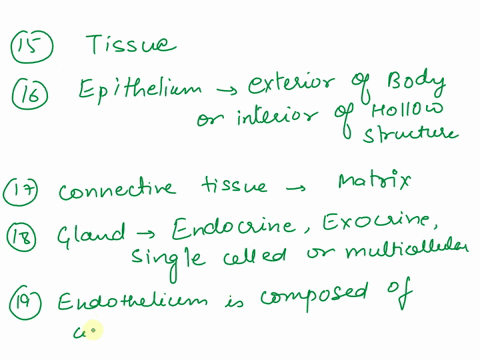 15 Tissue
16 Epithelium → exterior of Body
or interior of Hollow
structure
17 connective tissue → matrix
18 Gland → Endocrine, Exocrine,
single celled or multicellular
19 Endothelium is composed of